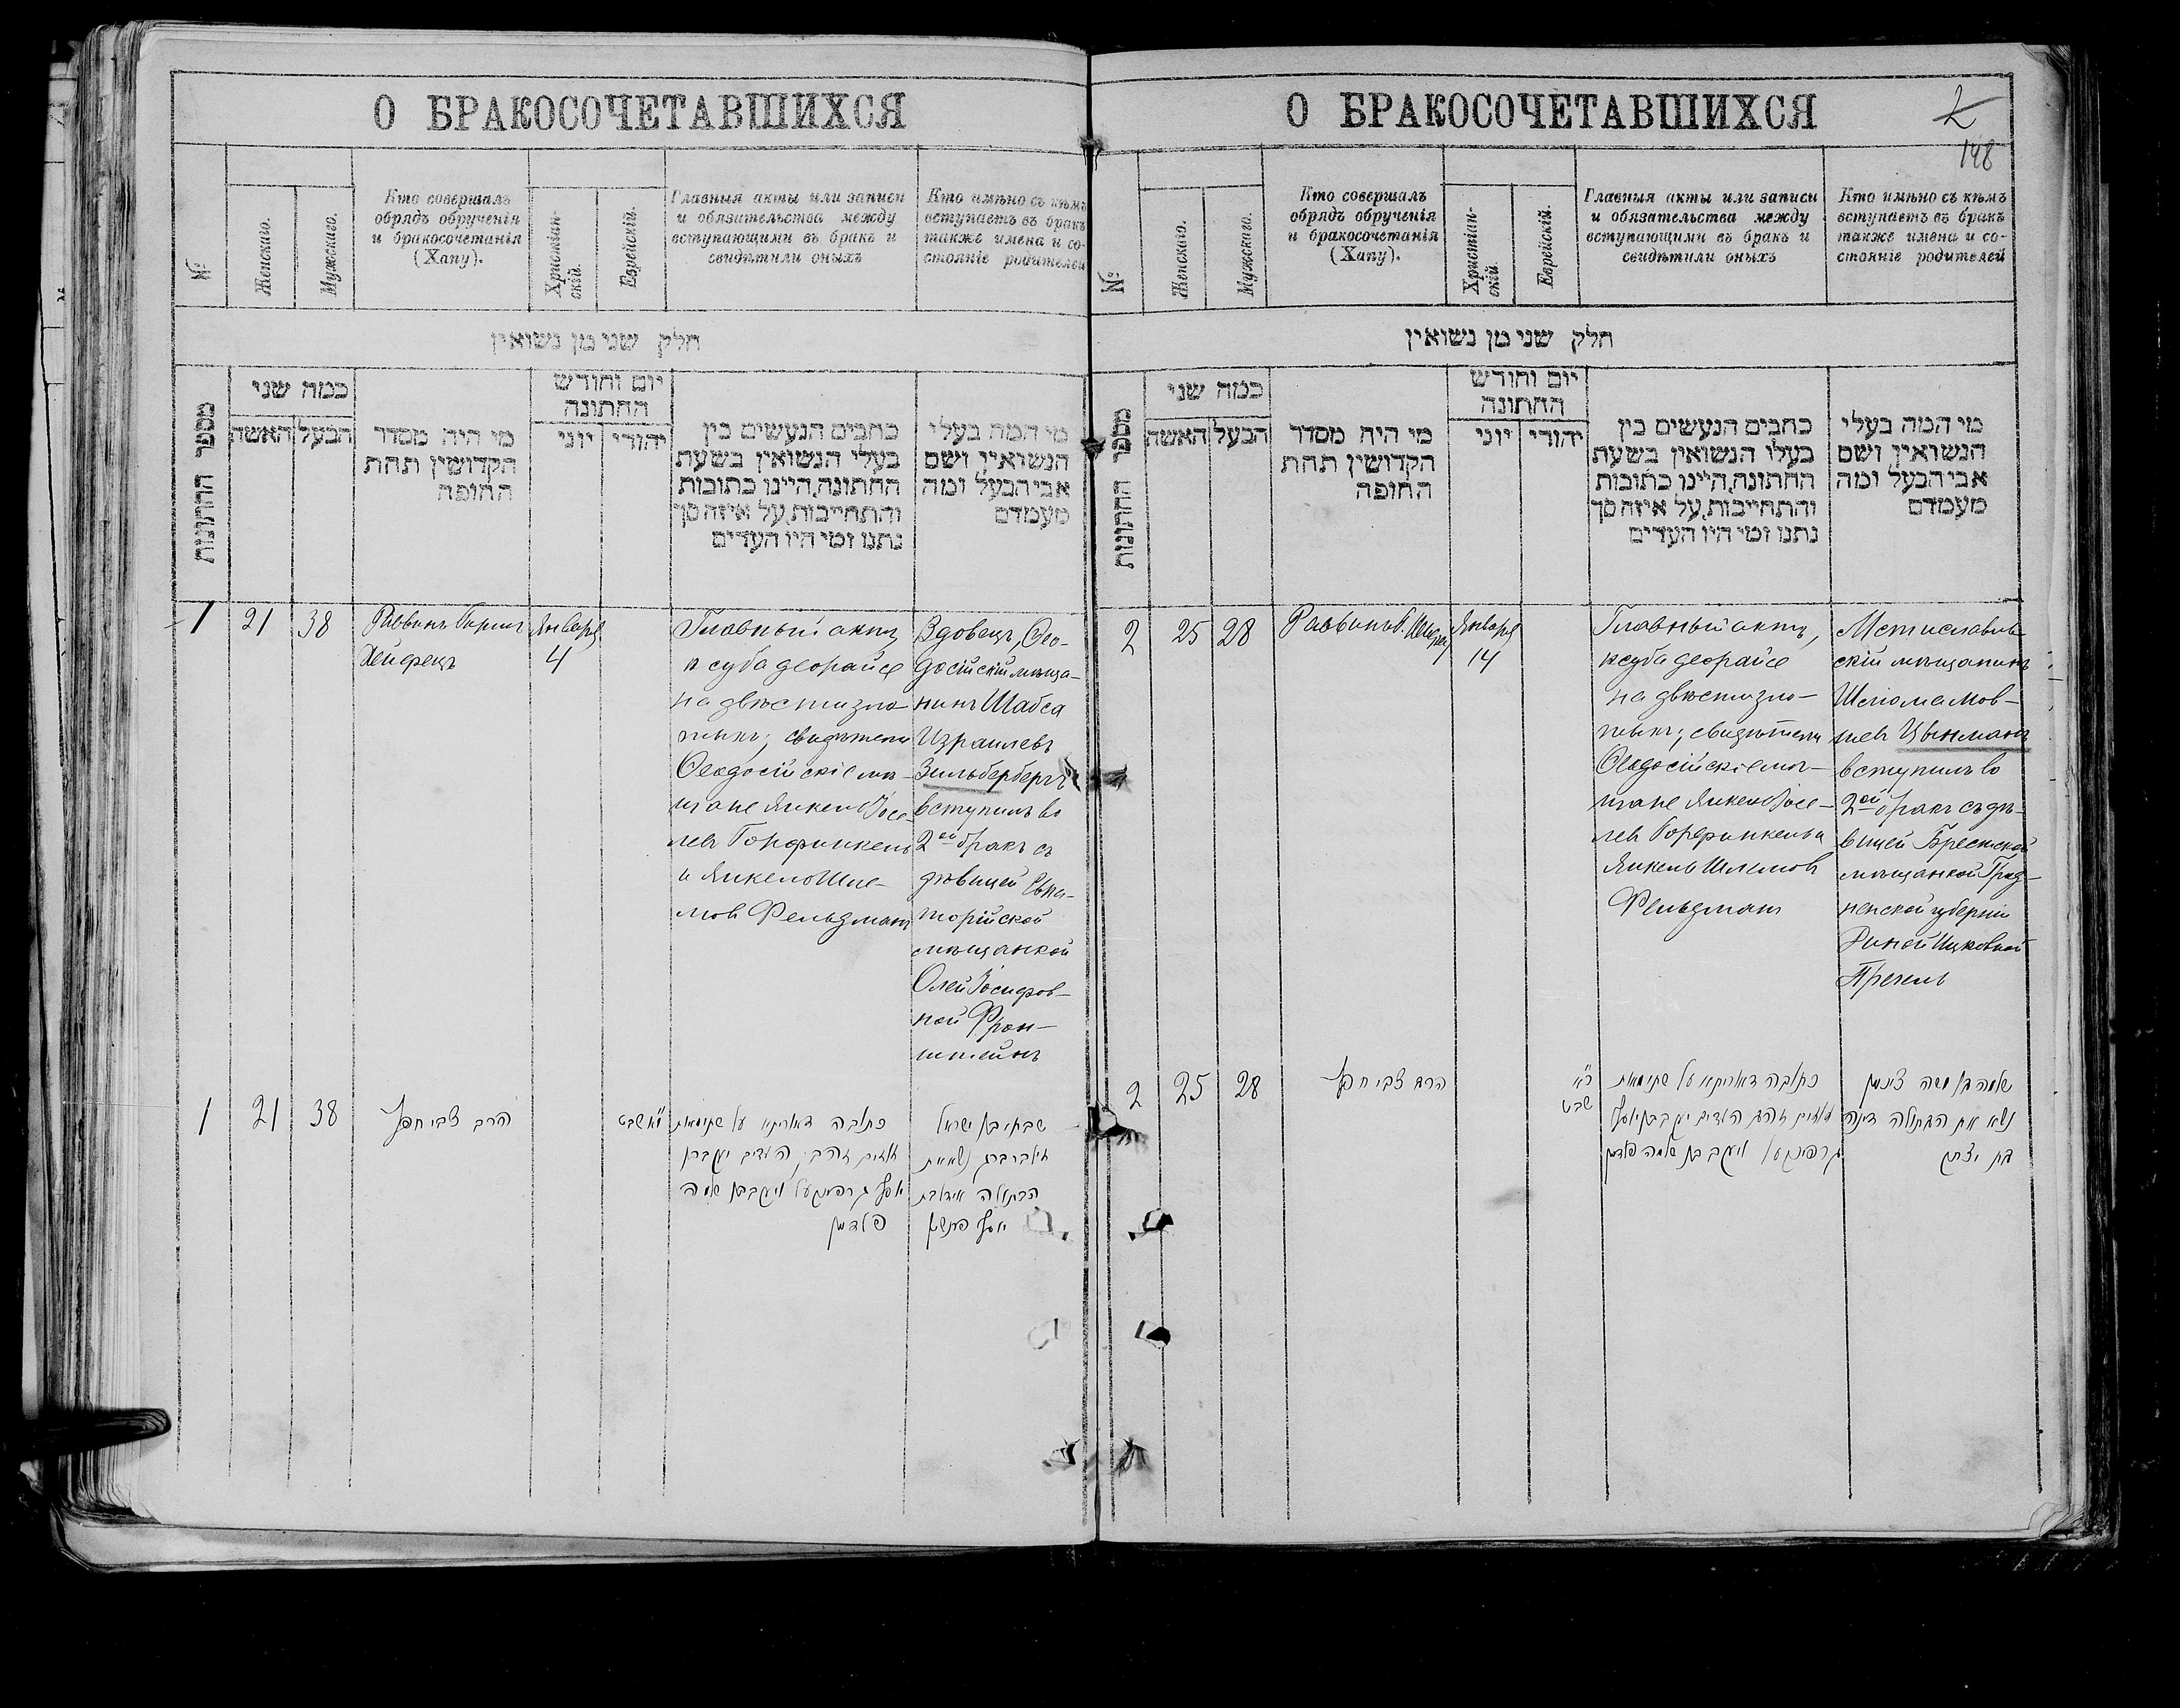 О БРАКОСОЧЕТАВШИХСЯ
№
Женскаго.
Мужскаго.
Кто совершалъ
обрядъ обрученія
и бракосочетанія
(Хапу).
Христіан-
скій.
Еврейскій.
Главныя акты или записи
и обязательства между
вступающими въ бракъ и
свидѣтили оныхъ
Кто имѣно съ кѣмъ
вступаетъ въ бракъ
также имена и со-
стояніе родителей
חלק שני מן נשואין
מספר החתונות
כמה שני
האשה
הבעל
מי היה מסדר
הקדושין תחת
החופה
יום וחודש
החתונה
יוני
יהודי
כתבים הנעשים בין
בעלי הנשואין בשעת
החתונה, היינו כתובות
והתחייבות, על איזה סך
נתנו ומי היו העדים
מי המה בעלי
הנשואין ושם
אבי הבעל ומה
מעמדם
1
21
38
Раввинъ
Хейфецъ
Января
4
Главный актъ
ксуба деорайсе
на двѣсти зло-
тыхъ; свидѣтели
Ѳеодосійскіе мѣ-
щане Янкель Іосе-
левъ Горфинкель
и Янкель Шле-
мов Фельдманъ
Вдовецъ, Ѳео-
досійскій мѣща-
нинъ Шабса
Израилевъ
Зильбербергъ
вступилъ во
2ой бракъ съ
дѣвицей Евпа-
торійской
мѣщанкой
Олей Іосифов-
ной Фрон-
штейнъ
1
21
38
הרב צבי חפץ
י"א שבט
כתובה דאוריתא על שתי מאות
זהובים, העדים יעקב בן
יוסף גרפינקעל ויעקב בן שלמה
פלדמן
שבתי בן ישראל
זילברברג נשא את
הבתולה בת
יוסף
О БРАКОСОЧЕТАВШИХСЯ
2
148
№
Женскаго.
Мужскаго.
Кто совершалъ
обрядъ обрученія
и бракосочетанія
(Хапу).
Христіан-
скій.
Еврейскій.
Главныя акты или записи
и обязательства между
вступающими въ бракъ и
свидѣтили оныхъ
Кто имѣно съ кѣмъ
вступаетъ въ бракъ
также имена и со-
стояніе родителей
חלק שני מן נשואין
מספר החתונות
כמה שני
האשה
הבעל
מי היה מסדר
הקדושין תחת
החופה
יום וחודש
החתונה
יוני
יהודי
כתבים הנעשים בין
בעלי הנשואין בשעת
החתונה, היינו כתובות
והתחייבות, על איזה סך
נתנו ומי היו העדים
מי המה בעלי
הנשואין ושם
אבי הבעל ומה
מעמדם
2
25
28
Раввинъ
Января
14
Главный актъ,
ксуба деорайсе
на двѣсти зло-
тыхъ; свидѣтели
Ѳеодосійскіе мѣ-
щане Янкель Іосе-
левъ Горфинкель и
Янкель Шлемов
Фельдманъ
Мстиславль-
скій мѣщанинъ
Шлиома Мов-
шевъ Цынманъ
вступилъ во
2ой бракъ съ дѣ-
вицей Брестской
мѣщанкой Грод-
ненской губерніи
Диной Ицковной
2
25
28
הרב צבי חפץ
כ"א
שבט
כתובה דאוריתא על שתי מאות
זהובים העדים יעקב בן יוסף
גרפינקעל ויעקב בן שלמה פלדמן
שלמה בן משה צינמן
נשא את הבתולה דינה
בת יצחק